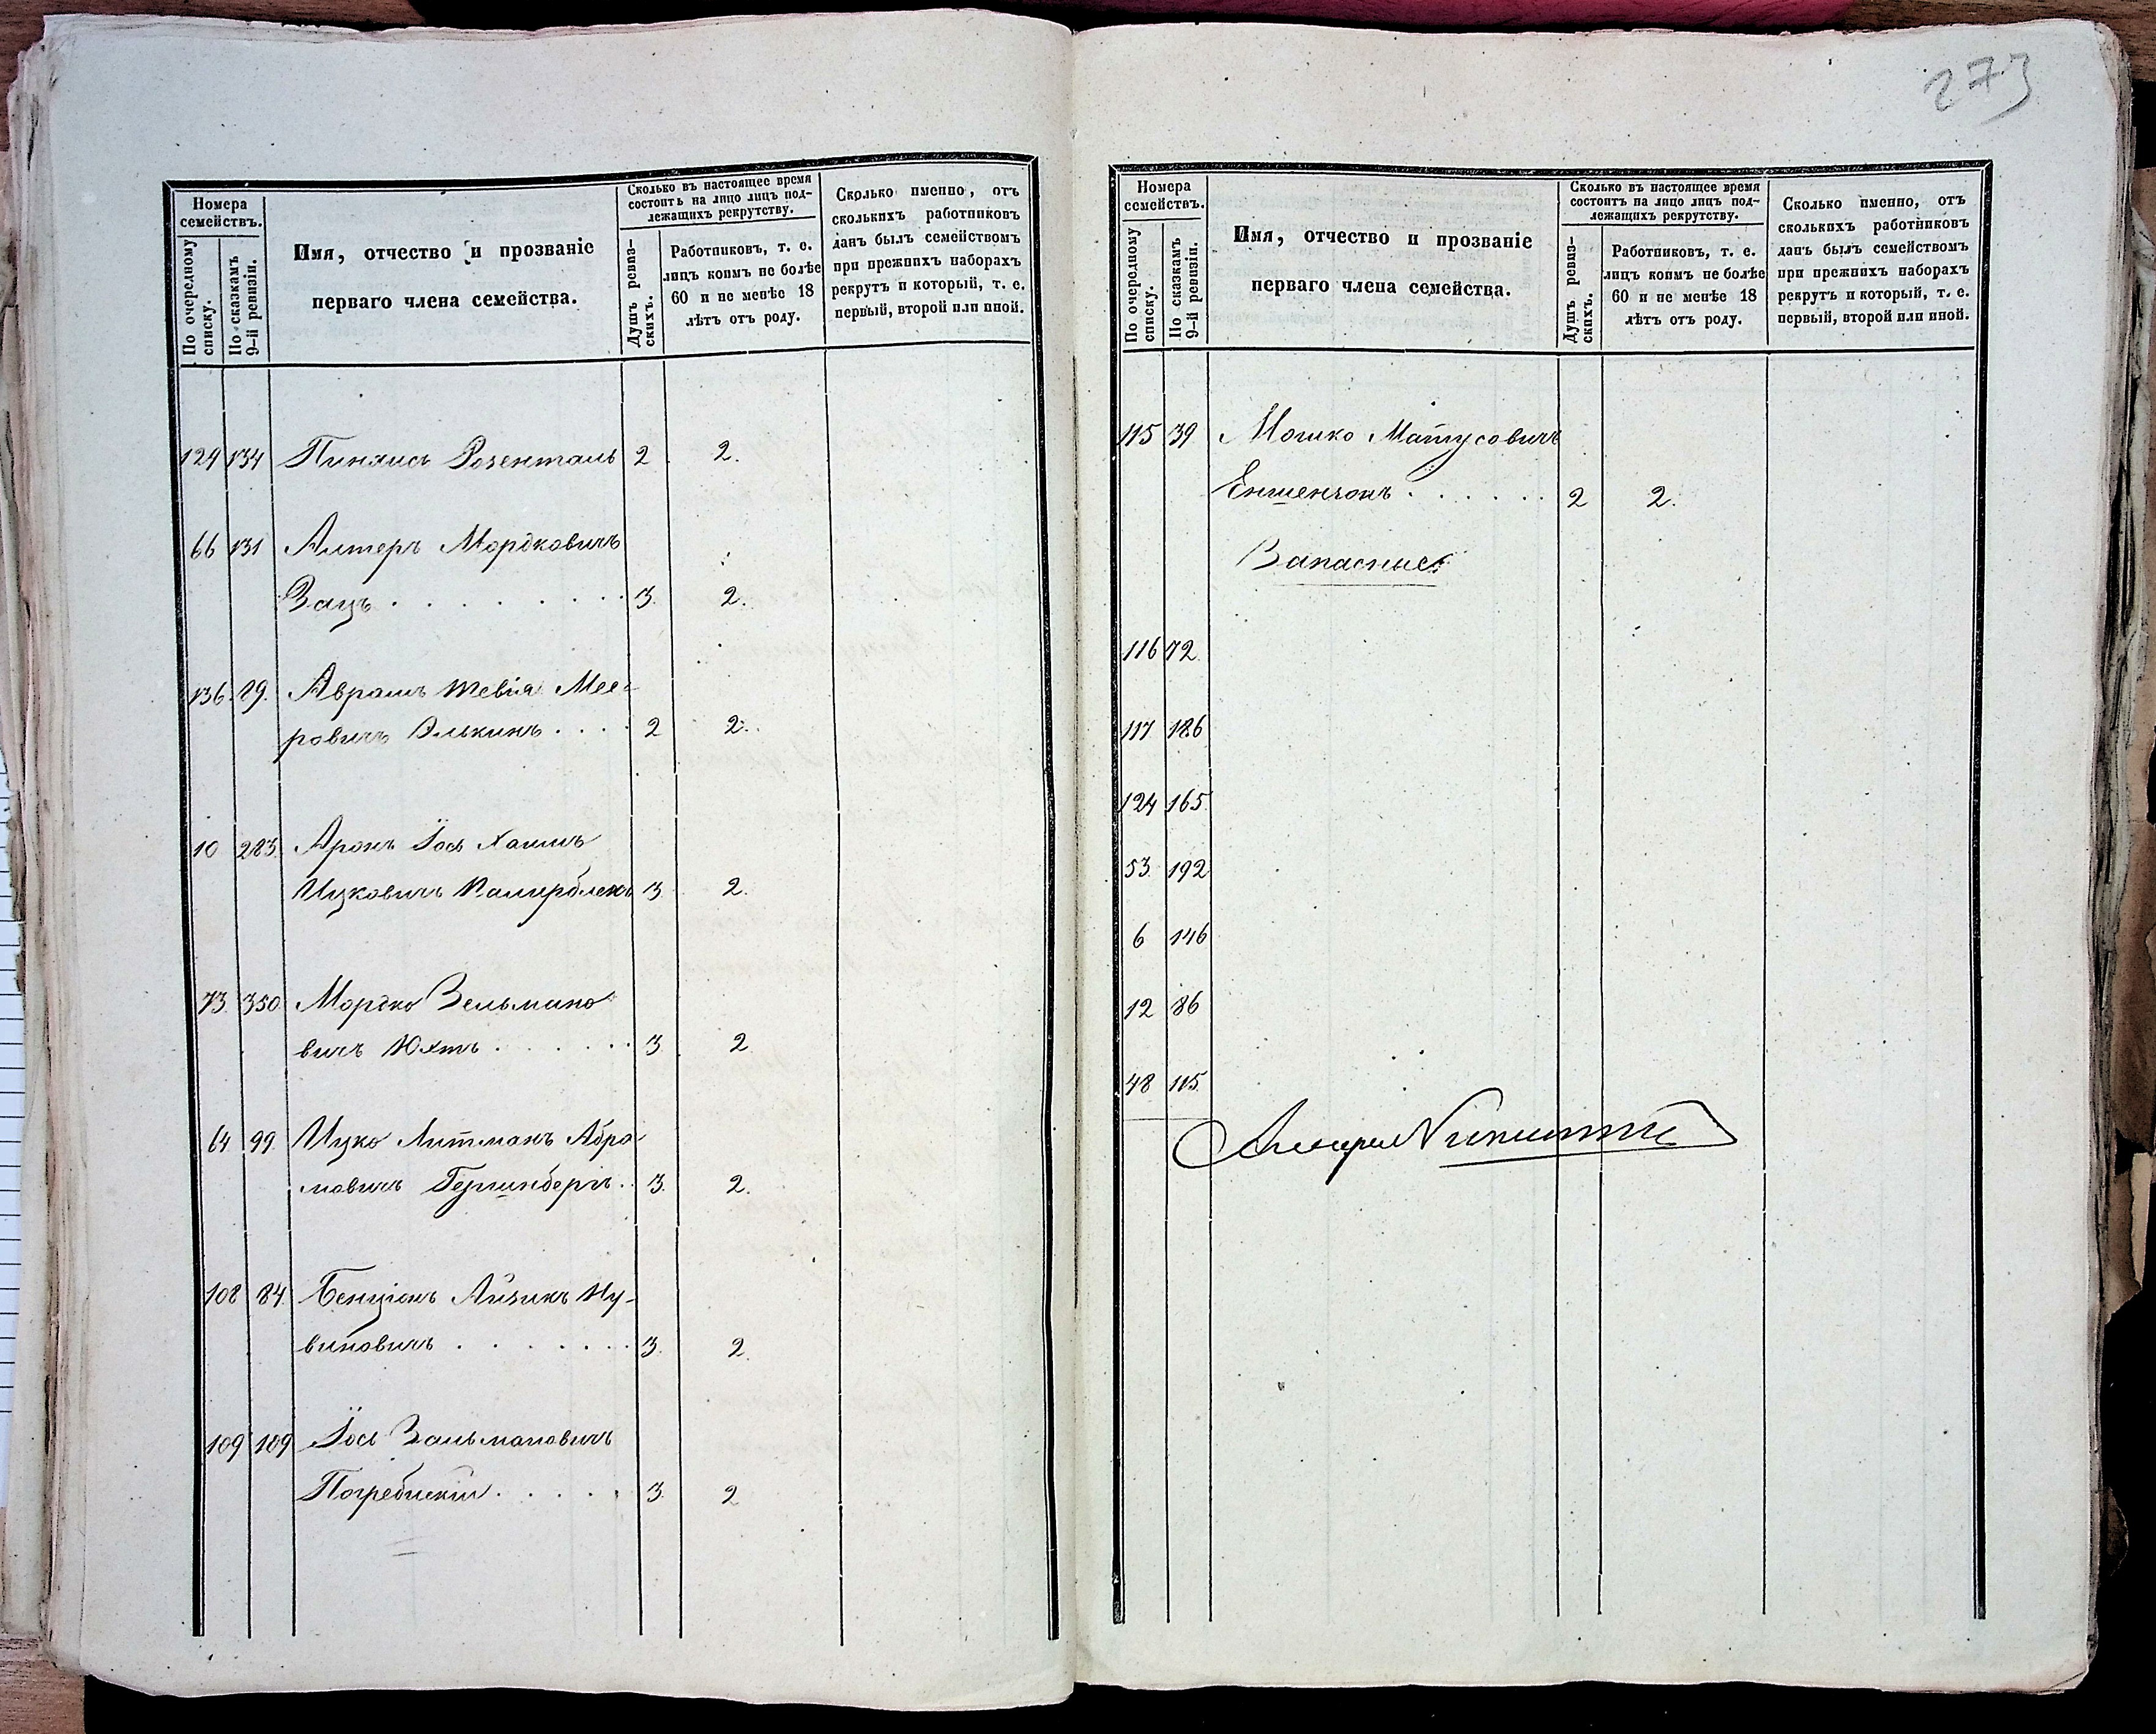 273
Номера
семействъ.
По очередному
списку.
По сказкамъ
9-й ревизіи.
Имя, отчество и прозваніе
перваго члена семейства.
Сколько въ настоящее время
состоитъ на лицо лицъ под-
лежащихъ рекрутству.
Душъ ревиз-
скихъ.
Работниковъ, т. е.
лицъ коимъ не болѣе
60 и не менѣе 18
лѣтъ отъ роду.
Сколько именно, отъ
сколькихъ работниковъ
данъ былъ семействомъ
при прежнихъ наборахъ
рекрутъ и который, т. е.
первый, второй или иной.
129 134 Пинхисъ Розенталь 2 2.
66 131 Алтеръ Мордковичъ
Зацъ . . . . . . . . . 3. 2.
136. 29. Аврамъ Тевіа Мее-
ровичъ Элькинъ . . . . 2 2.
10 283. Аронъ Іось Хаимъ
Ицковичъ 3 2.
73. 350. Мордко Зельмано
вичъ Юхтъ . . . . . . 3. 2
64 99. Ицко Литманъ Абра
мовичъ . . 3. 2.
108 84. Бенціонъ Айзикъ
виновичъ . . . . . . . 3. 2.
109 109 Іось Зальмановичъ
Погребискій . . . . . 3. 2
Номера
семействъ.
По очередному
списку.
По сказкамъ
9-й ревизіи.
Имя, отчество и прозваніе
перваго члена семейства.
Сколько въ настоящее время
состоитъ на лицо лицъ под-
лежащихъ рекрутству.
Душъ ревиз-
скихъ.
Работниковъ, т. е.
лицъ коимъ не болѣе
60 и не менѣе 18
лѣтъ отъ роду.
Сколько именно, отъ
сколькихъ работниковъ
данъ былъ семействомъ
при прежнихъ наборахъ
рекрутъ и который, т. е.
первый, второй или иной.
115 39 Мошко Матусовичъ
Еншенчокъ . . . . . . 2 2.
Запасные
116 72.
117 186
124 165.
53. 192
6 146
12 86
48 115.